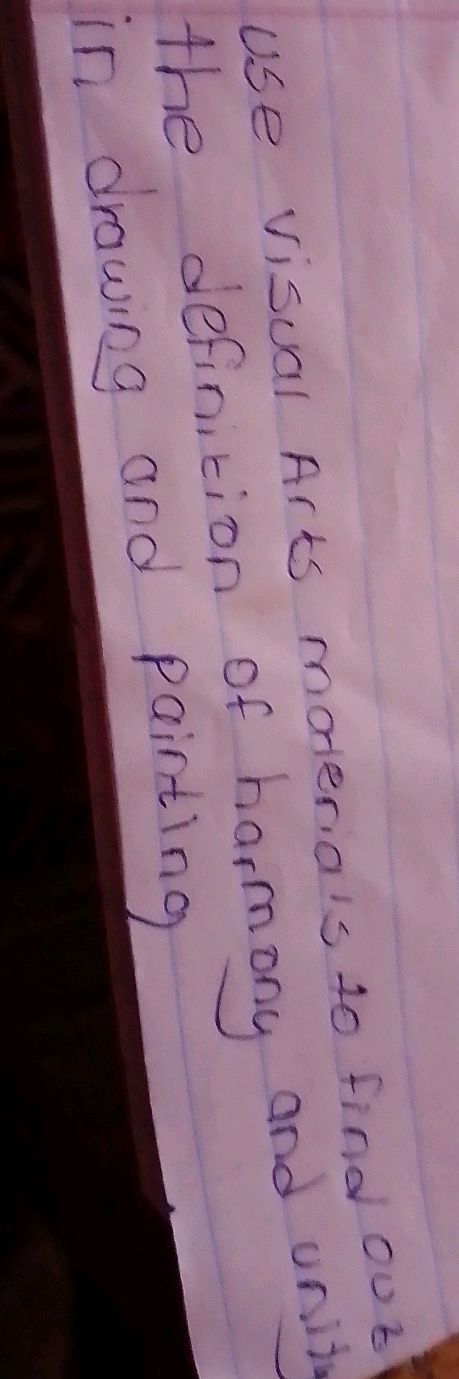 use visual Arts materials to find out
the definition of harmony and unity
in drawing and painting